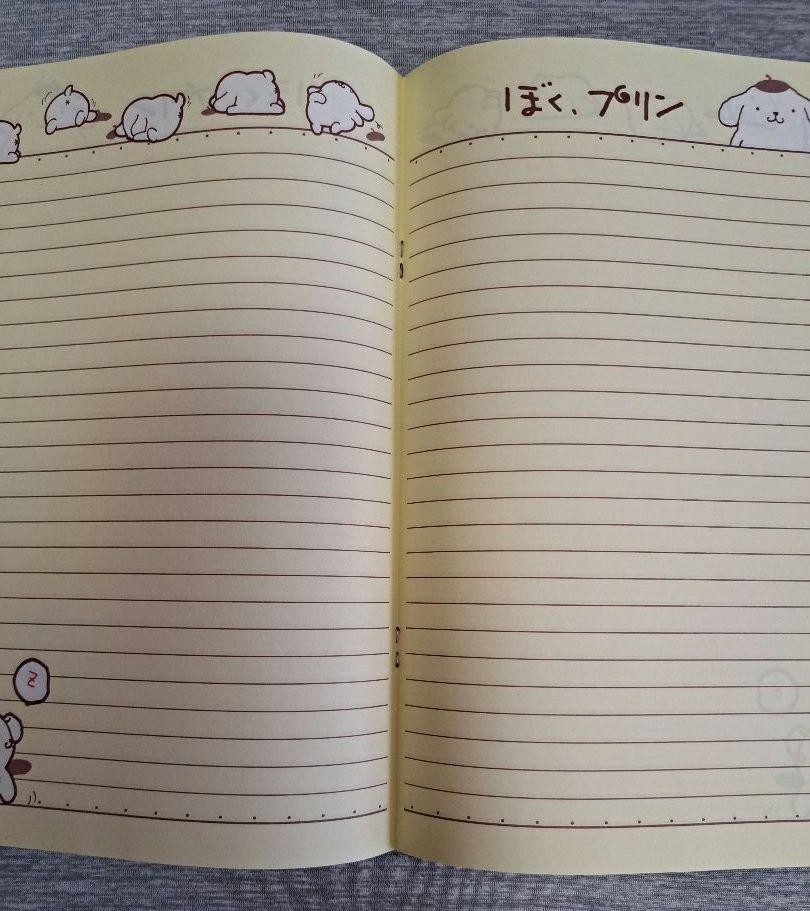 ぼく、プリン